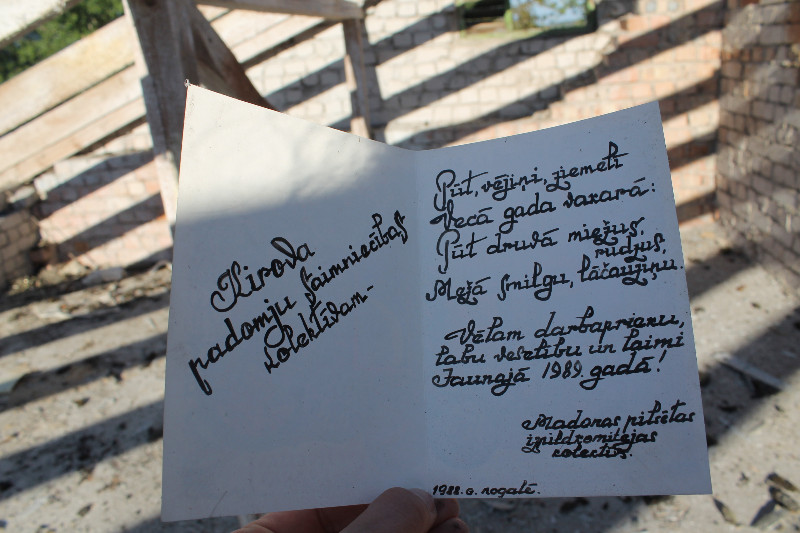 Kirova
padomju saimniecības
kolektīvam-
Pūt, vējiņi, ziemelī
Vecā gada vakarā:
Pūt druvā miežus,
rudzus,
Mežā smilgu, lāčauziņu.
Vēlam darbaprieku,
labu veselību un laimi
Jaunajā 1989. gadā!
Madonas pilsētas
izpildkomitejas
kolektīvs.
1988.g. nogalē.